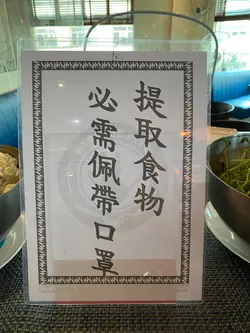 提取食物
必需佩帶口罩